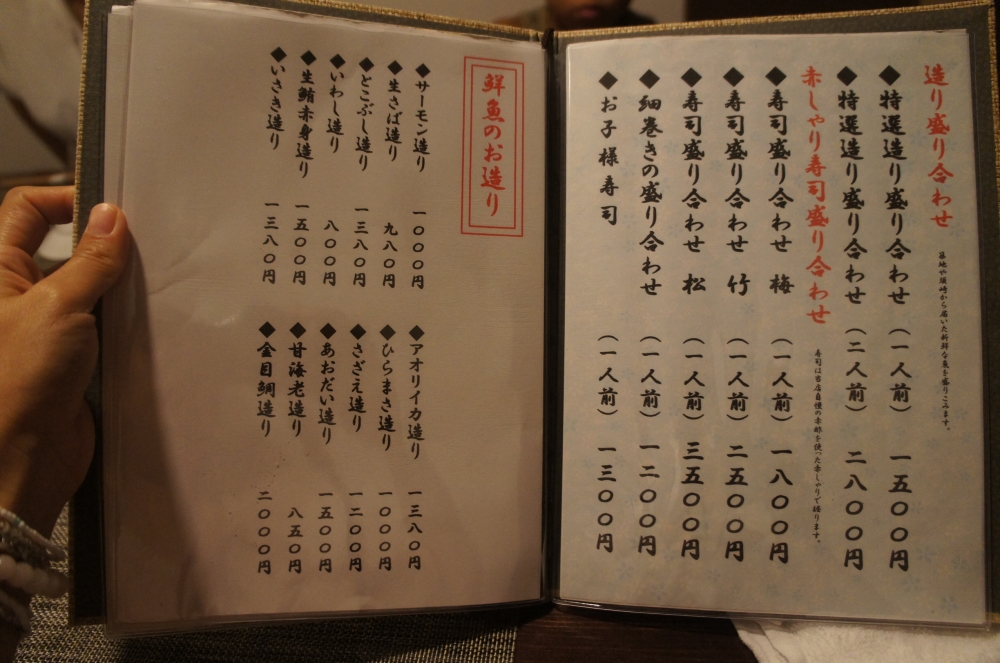 造り盛り合わせ
築地や須崎から届いた新鮮な魚を盛りこみます。
◆特選造り盛り合わせ（一人前）一五〇〇円
◆特選造り盛り合わせ（二人前）二八〇〇円
赤しゃり寿司盛り合わせ
寿司は当店自慢の赤酢を使った赤しゃりで握ります。
◆寿司盛り合わせ 梅（一人前）一八〇〇円
◆寿司盛り合わせ 竹（一人前）二五〇〇円
◆寿司盛り合わせ 松（一人前）三五〇〇円
◆細巻きの盛り合わせ（一人前）一二〇〇円
◆お子様寿司（一人前）一三〇〇円
鮮魚のお造り
◆サーモン造り 一〇〇〇円
◆生さば造り 九八〇円
◆とこぶし造り 一三八〇円
◆いわし造り 八〇〇円
◆生鮪赤身造り 一五〇〇円
◆いさき造り 一三八〇円
◆アオリイカ造り 一三八〇円
◆ひらまさ造り 一〇〇〇円
◆さざえ造り 一二〇〇円
◆あおだい造り 一五〇〇円
◆甘海老造り 八五〇円
◆金目鯛造り 二〇〇〇円